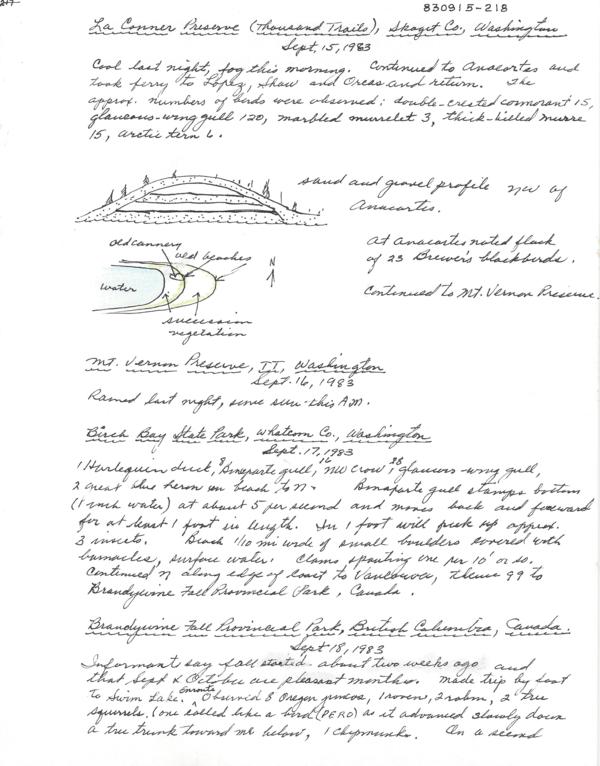 830915-218
La Conner Preserve (Thousand Trails), Skagit Co., Washington
Sept. 15, 1983
Cool last night, fog this morning. Continued to Anacortes and
took ferry to Lopez, Shaw and Orcas and return. The
approx. numbers of birds were observed: double-crested cormorant 15,
glaucous-wing gull 120, marbled murrelet 3, thick-billed murre
15, arctic tern 6.
sand and gravel profile NW of
Anacortes.
old cannery
old beaches
N
water
succession
vegetation
At Anacortes noted flock
of 23 Brewer's blackbirds.
Continued to Mt. Vernon Preserve.
Mt. Vernon Preserve, TT, Washington
Sept. 16, 1983
Rained last night, some sun this A.M.
Birch Bay State Park, Whatcom Co., Washington
Sept. 17, 1983
1 Harlequin duck, 8 Bonaparte gull, 16 NW Crow, 28 glaucous-wing gull,
2 great blue heron on beach to N. Bonaparte gull stamps bottom
(1 inch water) at about 5 per second and moves back and forward
for at least 1 foot in length. In 1 foot will pick up approx.
3 insects. Beach 1/10 mi wide of small boulders covered with
barnacles, surface water. Clams spouting one per 10' or so.
Continued N along edge of coast to Vancouver, thence 99 to
Brandywine Fall Provincial Park, Canada.
Brandywine Fall Provincial Park, British Columbia, Canada.
Sept 18, 1983
Informant say fall started about two weeks ago and
that Sept & October are pleasant months. Made trip by foot
to Swim Lake. Enroute Observed 8 Oregon juncos, 1 raven, 2 robin, 2 tree
squirrels. (one called like a bird (PERO) as it advanced slowly down
a tree trunk toward me below, 1 chipmunk. On a second